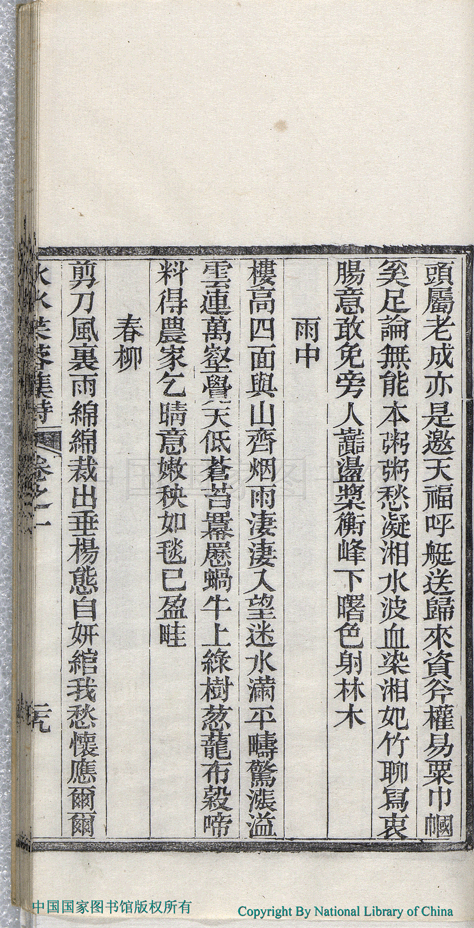 頭屬老成亦是邀天福呼艇送歸來資斧權易粟巾幗
奚足論無能本粥粥愁凝湘水波血染湘妃竹聊寫衷
腸意敢免旁人讟盪槳衡峰下曙色射林木
雨中
樓高四面與山齊烟雨淒淒入望迷水滿平疇驚漲溢
雲連萬壑覺天低蒼苔羃䍥蝸牛上綠樹葱蘢布穀啼
料得農家乞晴意嫩秧如毯已盈畦
春柳
剪刀風裏雨綿綿裁出垂楊態自妍綰我愁懷應爾爾
芙蓉集詩
卷之一
中国国家图书馆版权所有
Copyright By National Library of China